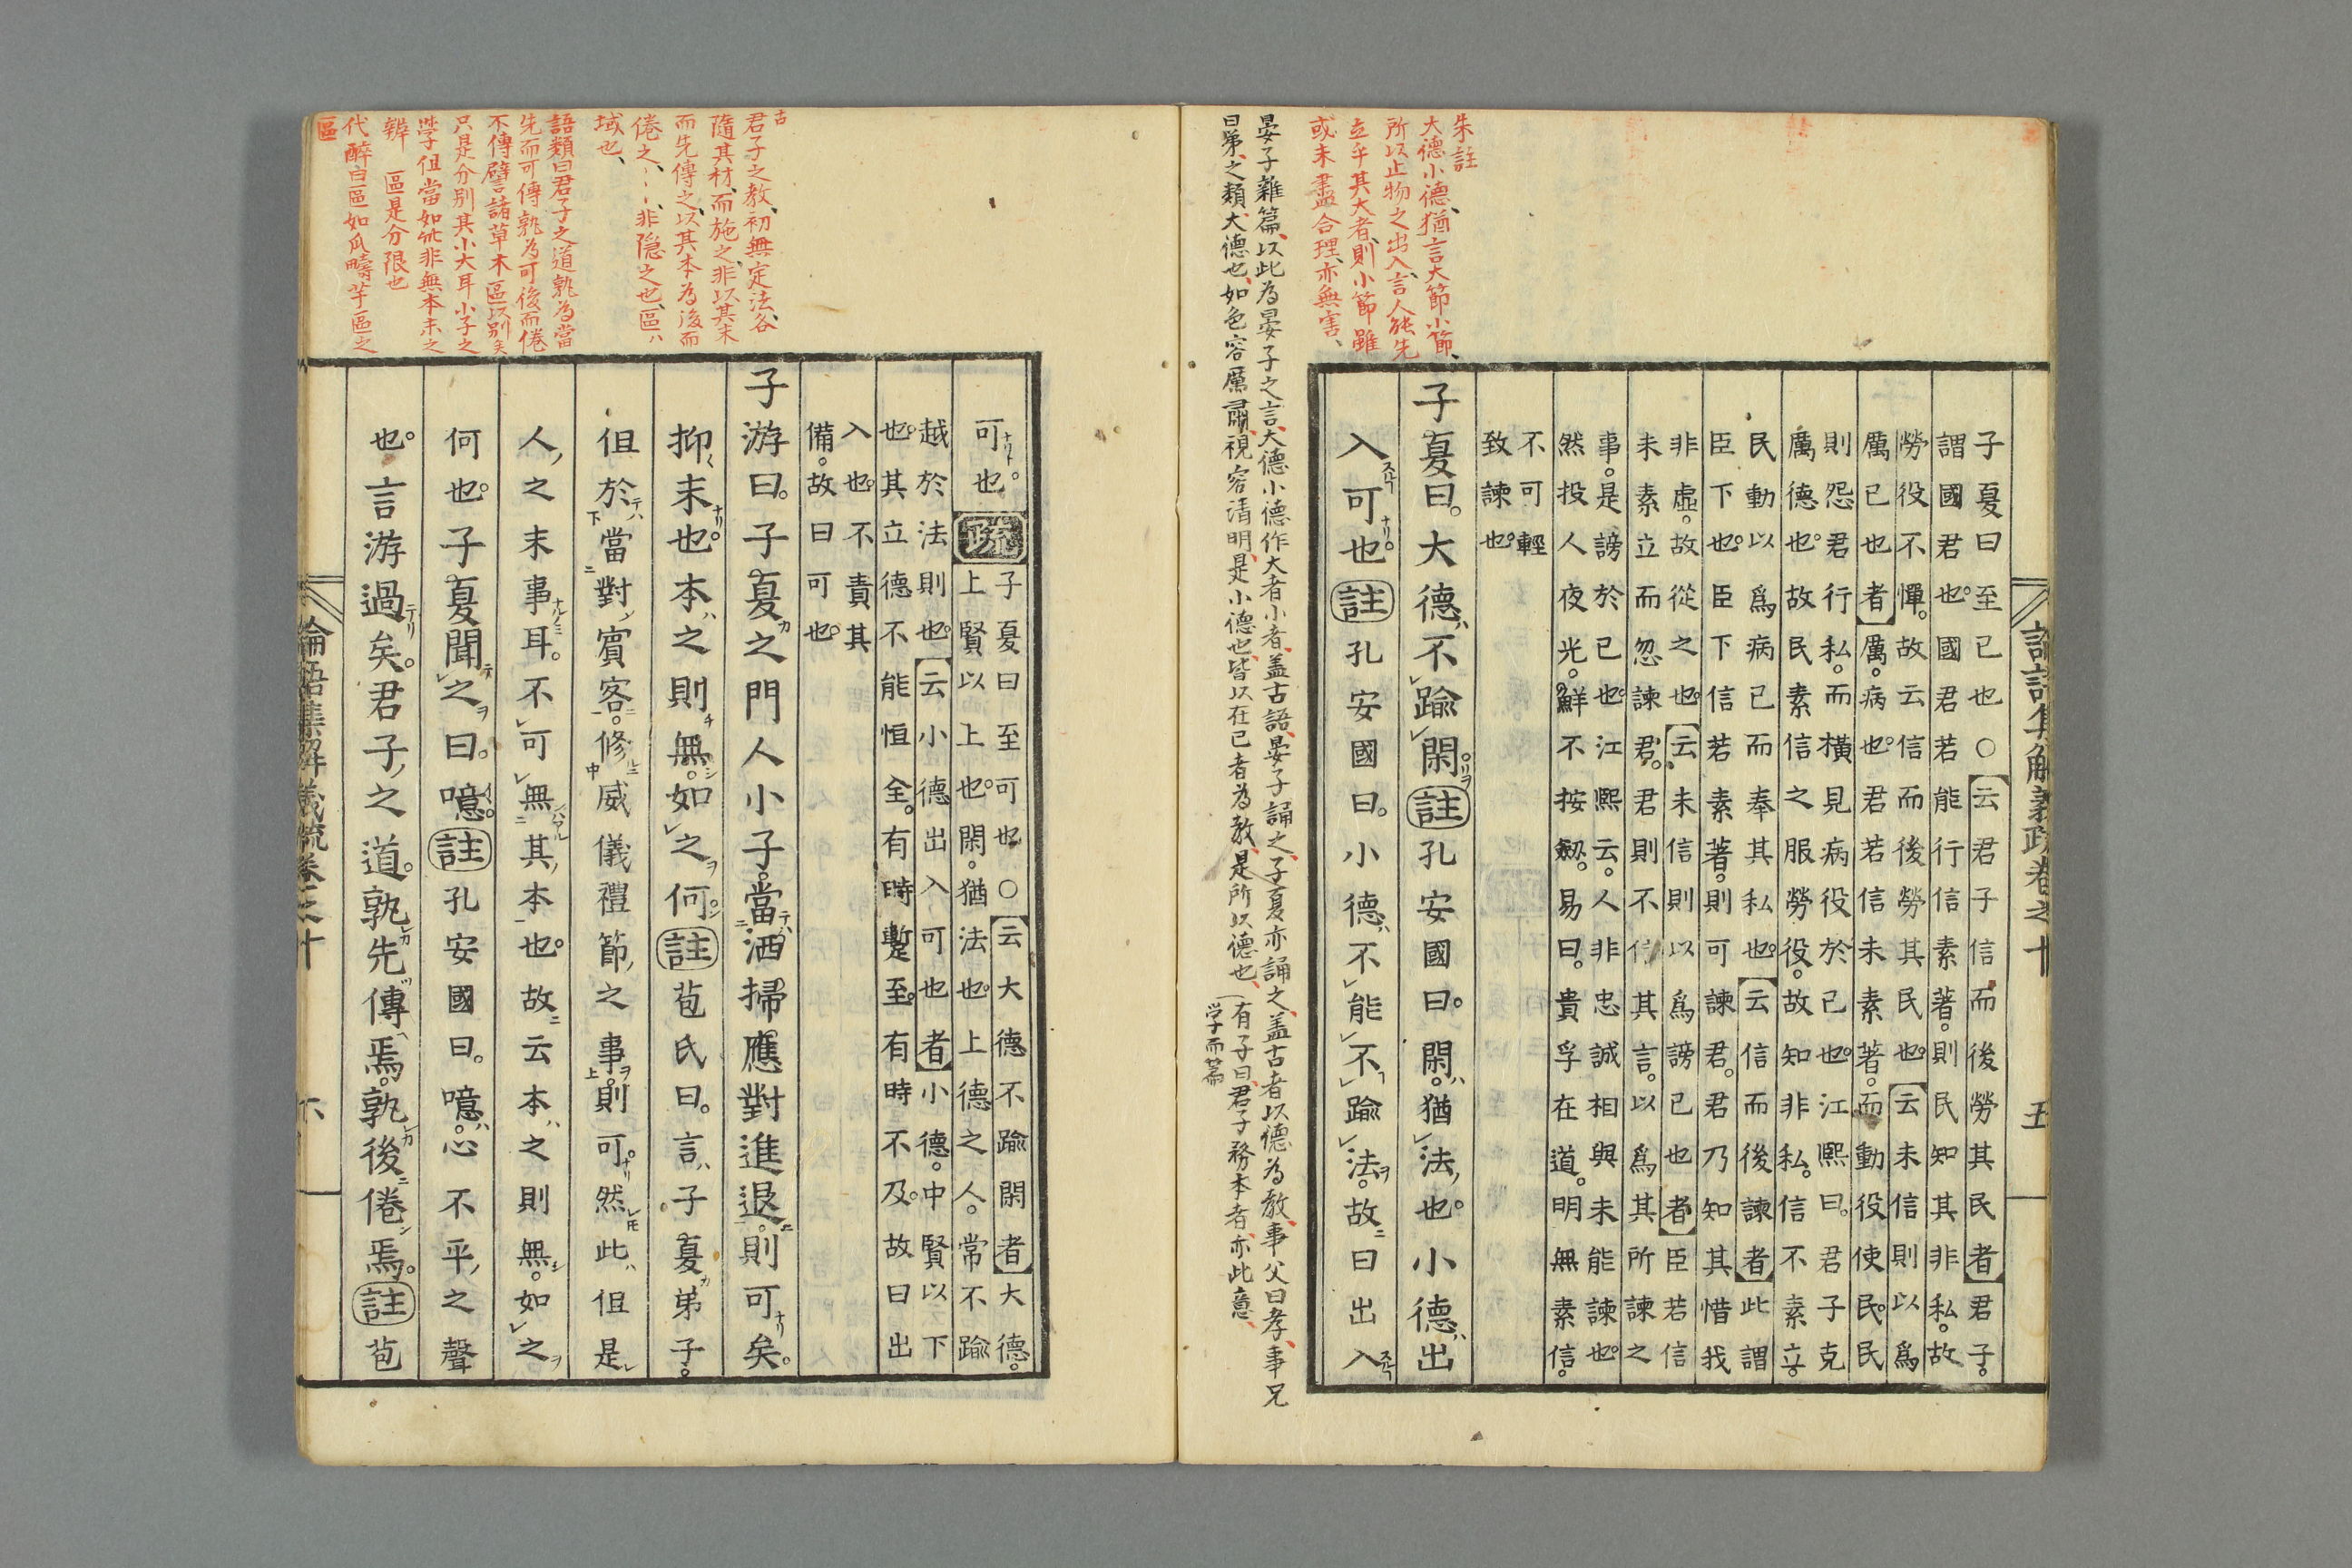 朱註
大德小德、猶言大節小節、
所以止物之出入、言人能先
立乎其大者、則小節雖
或未盡合理、亦無害、
論語集解義疏卷之十
五
子夏曰至已也○云君子信而後勞其民者君子。
謂國君也。國君若能行信素著。則民知其非私。故
勞役不憚。故云信而後勞其民也。云未信則以爲
厲已也者厲。病也。君若信未素著。而動役使民。民
則怨君行私。而橫見病役於已也。江熙曰。君子克
厲德也。故民素信之服勞役。故知非私。信不素立。
民動以爲病已而奉其私也。云信而後諫者此謂
臣下也。臣下信若素著。則可諫君。君乃知其惜我
非虛。故從之也。云未信則以爲謗已也者臣若信
未素立而忽諫君。君則不信其言。以爲其所諫之
事。是謗於已也。江熙云。人非忠誠相與未能諫也。
然投人夜光。鮮不按劔。易曰。貴孚在道。明無素信。
不可輕
致諫也。
子夏曰。大德不踰閑。註孔安國曰。閑。猶法也。小德出
入可也。註孔安國曰。小德不能不踰法。故曰出入
晏子雜篇、以此為晏子之言、大德小德作大者小者、盖古語、晏子誦之、子夏亦誦之、盖古者以德為教、事父曰孝、事兄
曰弟、之類、大德也、如色容厲肅、視容清明、是小德也、皆以在已者為教、是所以德也、
有子曰、君子務本者、亦此意、
学而篇
古
君子之教、初無定法、各
隨其材、而施之、非以其末
而先傳之、以其本為後而
倦之、、、非隱之也、區ハ
域也、
語類曰君子之道孰為當
先而可傳孰為可後而倦
不傳譬諸草木區以別矣
只是分別其小大耳小子之
學但當如此非無本末之
辨 區是分限也
代醉曰區如瓜疇芋區之
區
可也。疏子夏曰至可也○云大德不踰閑者大德。
上賢以上也。閑。猶法也。上德之人。常不踰
越於法則也。云小德出入可也者小德。中賢以下
也。其立德不能恒全。有時蹔至。有時不及。故曰出
入也。不責其
備。故曰可也。
子游曰。子夏之門人小子。當洒掃應對進退。則可矣。
抑末也。本之則無。如之何。註苞氏曰。言子夏弟子。
但於當對賓客。修威儀禮節之事則可。然此但是
人之末事耳。不可無其本也。故云本之則無。如之
何也。子夏聞之曰。噫。註孔安國曰。噫。心不平之聲
也。言游過矣。君子之道。孰先傳焉。孰後倦焉。註苞
論語集解義疏卷之十
六